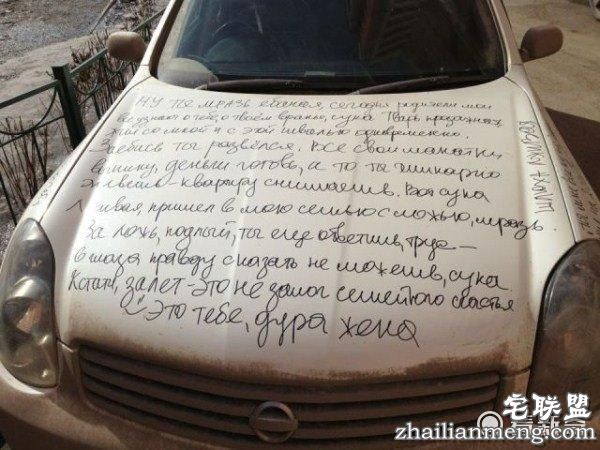 Ну ты мразь ебаная, сегодня родители мои
все узнают о тебе, о твоем вранье, сука. Тварь продажная,
жил со мной и с этой швалью одновременно.
Заебись ты развёлся. Все свои манатки
вышлу, деньги готовь, а то ты шикарно
живешь-квартиру снимаешь. Вся сука
пришел в мою семью с ложью, мразь.
За ложь, подлый, ты еще ответишь, трус-
в глаза правду сказать не можешь, сука
Кстати, залет-это не залог семейного счастья
Это тебе, дура жена
宅联盟
zhailianmeng.com